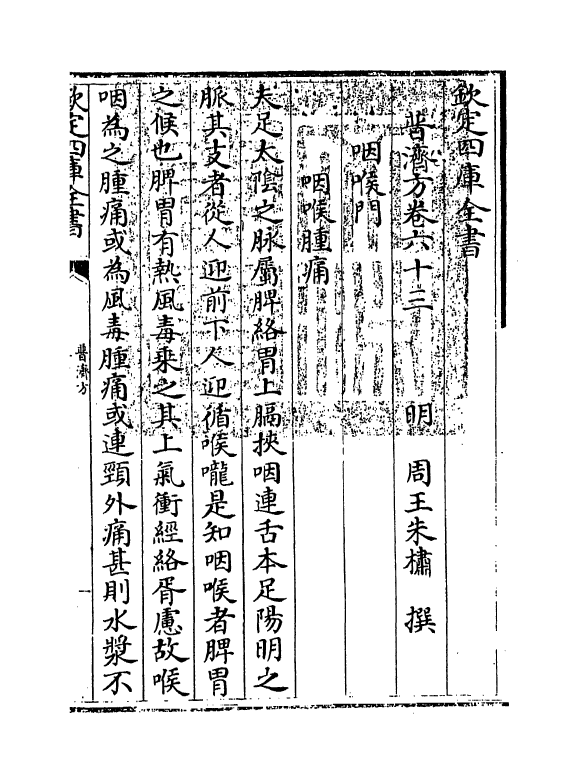 欽定四庫全書
普濟方卷六十三　明　周王朱橚　撰
咽喉門
咽喉腫痛
夫足太陰之脉屬脾絡胃上膈挾咽連舌本足陽明之
脈其支者從人迎前下人迎循喉嚨是知咽喉者脾胃
之候也脾胃有熱風毒乗之其上氣衝經絡胥慮故喉
咽為之腫痛或為風毒腫痛或連頸外痛甚則水漿不
欽定四庫全書
普濟方
一